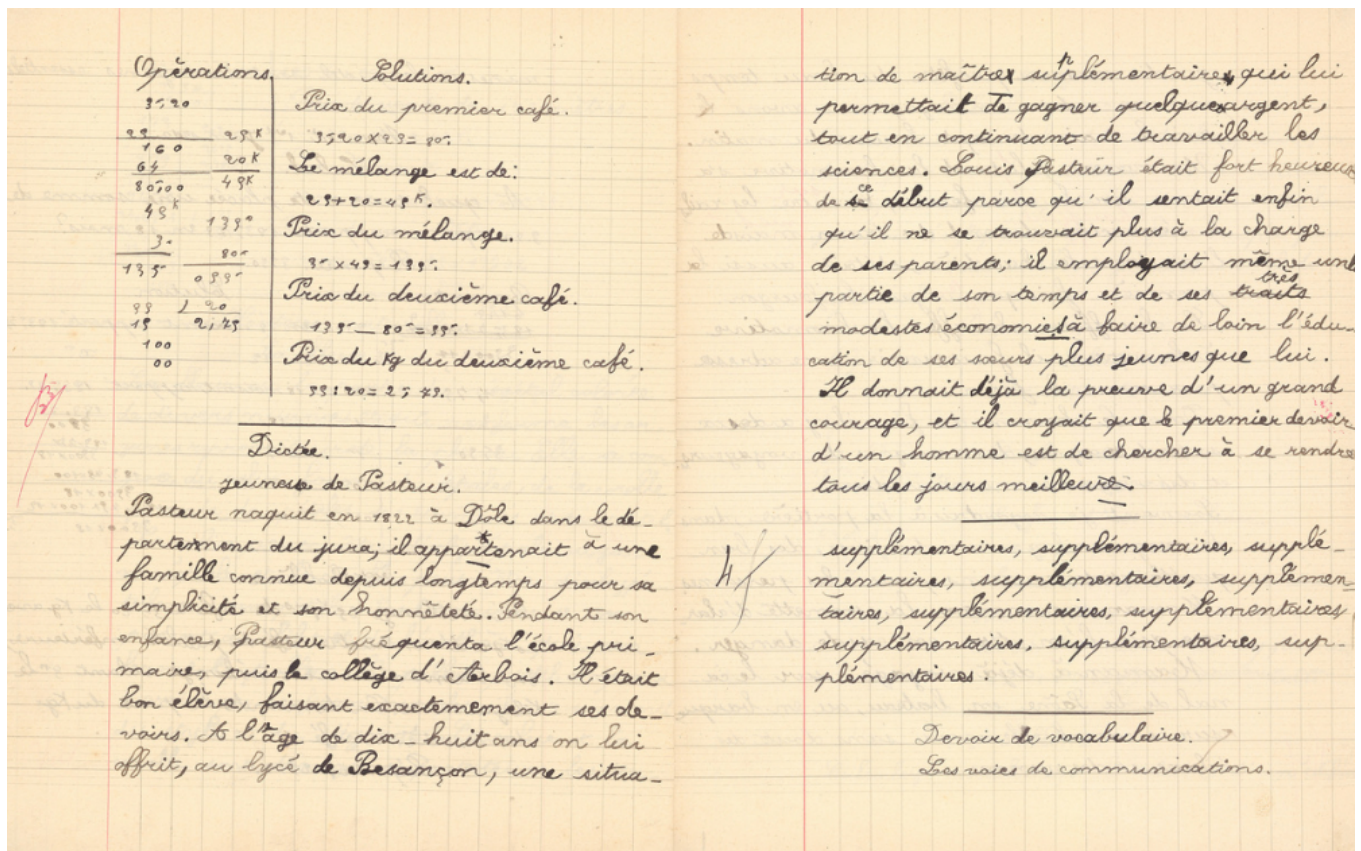 Opérations.
3f20
25 25K
160
64 20K
80f00 45K
45K
135f
3f
80f
135f 055f
55 20
15 2,75
100
00
Solutions.
Prix du premier café.
3f,20 x 25 = 80f.
Le mélange est de:
25+20=45K.
Prix du mélange.
3f x 45 = 135f.
Prix du deuxième café.
135f — 80f = 55f.
Prix du Kg du deuxième café.
55 : 20 = 2f 75.
Dictée.
jeunesse de Pasteur.
Pasteur naquit en 1822 à Dôle dans le dé-
partement du jura; il appartenait à une
famille connue depuis longtemps pour sa
simplicité et son honnêteté. Pendant son
enfance, Pasteur fréquenta l'école pri-
maire, puis le collège d'Arbois. Il était
bon élève, faisant exactemement ses de-
voirs. A l'âge de dix-huit ans on lui
offrit, au lycé de Besançon, une situa-
tion de maître suplémentaire, qui lui
permettait de gagner quelque argent,
tout en continuant de travailler les
sciences. Louis Pasteur était fort heureux
de ce début parce qu'il sentait enfin
qu'il ne se trouvait plus à la charge
de ses parents; il employait même une
partie de son temps et de ses traits très
modestes économies à faire de loin l'édu-
cation de ses sœurs plus jeunes que lui.
Il donnait déjà la preuve d'un grand
courage, et il croyait que le premier devoir
d'un homme est de chercher à se rendre
tous les jours meilleure.
4
supplémentaires, supplémentaires, supplé-
mentaires, supplémentaires, supplémen-
taires, supplémentaires, supplémentaires
supplémentaires, supplémentaires, sup-
plémentaires.
Devoir de vocabulaire.
Les voies de communications.